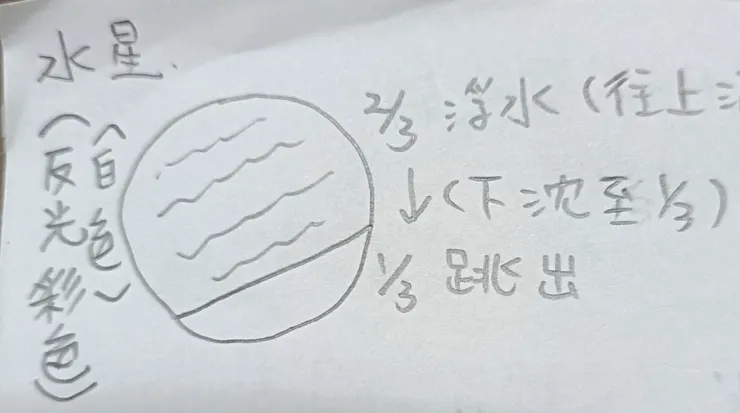 水星
(白色)
(反光彩色)
2/3 浮水(往上
↓(下沈至1/3)
1/3 跳出